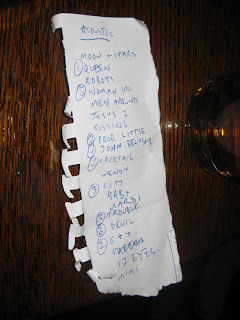 ACOUSTIC
MOON + STARS
① QUEEN
ROBOTS
③ WOMAN UN.
MESS AROUND
JESUS 2
KISSING
② POOR LITTLE
③ JOHN BELUSHI
① COCKTAIL
WENDY
③ CITY
BABY
MARDI
② TROUBLE
③ DEVIL
② G + +
BARBARA
12 EYES
MIMI